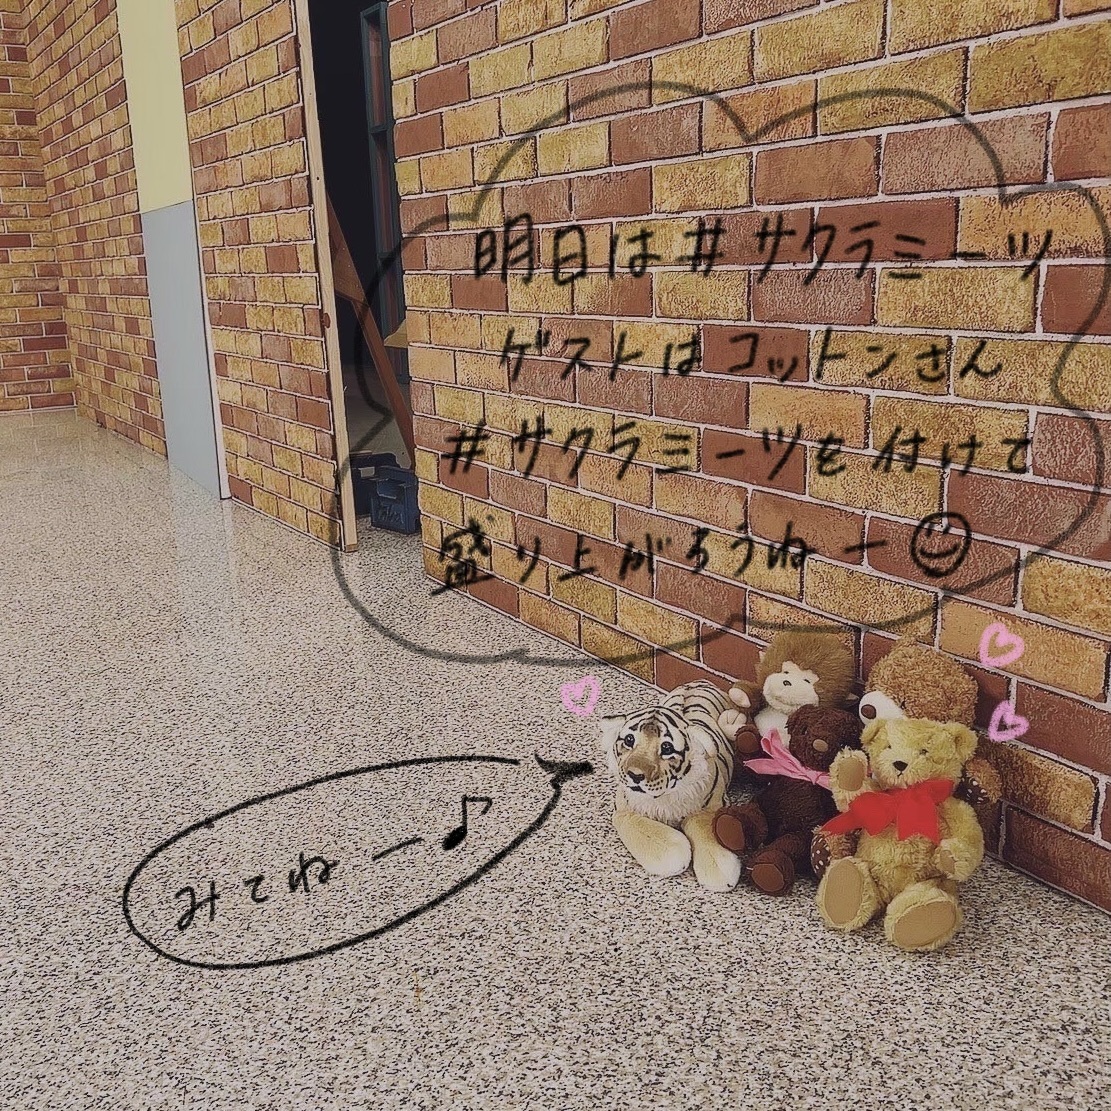 明日は#サクラミーツ
ゲストはコットンさん
#サクラミーツを付けて
盛り上がろうねー
みてねー♪